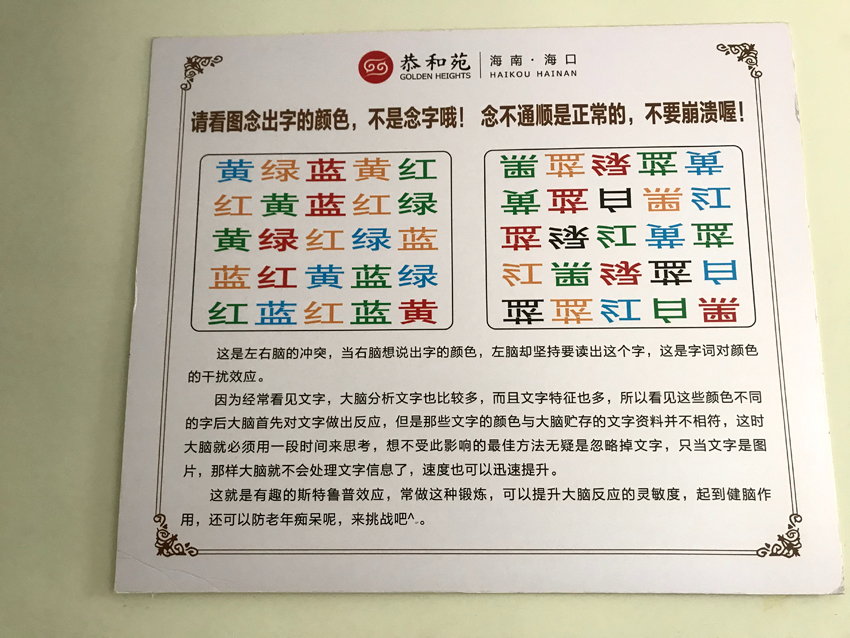 恭和苑
GOLDEN HEIGHTS
海南·海口
HAIKOU HAINAN
请看图念出字的颜色，不是念字哦！ 念不通顺是正常的，不要崩溃喔！
黄绿蓝黄红
红黄蓝红绿
黄绿红绿蓝
蓝红黄蓝绿
红蓝红蓝黄
黑蓝绿蓝黄
黄蓝白黑红
蓝绿红黄蓝
红黑绿蓝白
蓝蓝红白黑
这是左右脑的冲突，当右脑想说出字的颜色，左脑却坚持要读出这个字，这是字词对颜色
的干扰效应。
因为经常看见文字，大脑分析文字也比较多，而且文字特征也多，所以看见这些颜色不同
的字后大脑首先对文字做出反应，但是那些文字的颜色与大脑贮存的文字资料并不相符，这时
大脑就必须用一段时间来思考，想不受此影响的最佳方法无疑是忽略掉文字，只当文字是图
片，那样大脑就不会处理文字信息了，速度也可以迅速提升。
这就是有趣的斯特鲁普效应，常做这种锻炼，可以提升大脑反应的灵敏度，起到健脑作
用，还可以防老年痴呆呢，来挑战吧^。